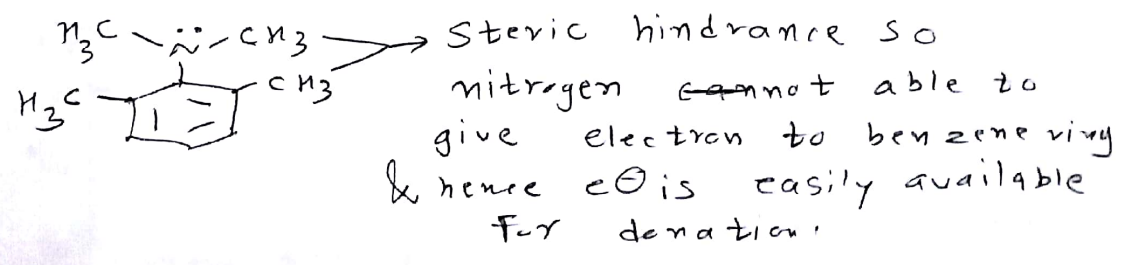 H₃C N̈ CH₃ → Steric hindrance so
H₃C CH₃ nitrogen not able to
give electron to benzene ring
& hence e⊖ is easily available
for donation.